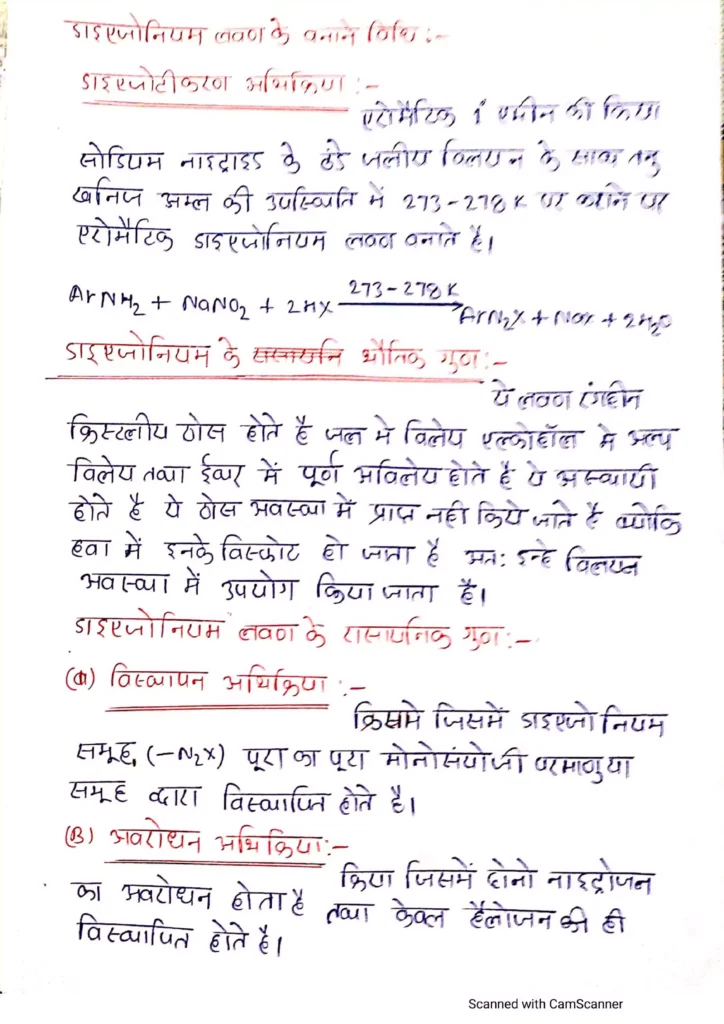 डाइएजोनियम लवण के बनाने विधि :-
डाइएजोटीकरण अभिक्रिया :-
एरोमैटिक 1° एमीन की क्रिया
सोडियम नाइट्राइड के ठंडे जलीय विलयन के साथ तनु
खनिज अम्ल की उपस्थिति में 273-278 K पर कराने पर
एरोमैटिक डाइएजोनियम लवण बनाते है।
ArNH₂ + NaNO₂ + 2HX 273-278K ArN₂X + NaX + 2H₂O
डाइएजोनियम के भौतिक गुण :-
ये लवण रंगहीन
क्रिस्टलीय ठोस होते है जल मे विलेय एल्कोहॉल मे अल्प
विलेय तथा ईथर में पूर्ण अविलेय होते है ये अस्थायी
होते है ये ठोस अवस्था में प्राप्त नही किये जाते है क्योकि
हवा में इनके विस्फोट हो जाता है अतः इन्हे विलयन
अवस्था में उपयोग किया जाता है।
डाइएजोनियम लवण के रासायनिक गुण :-
(A) विस्थापन अभिक्रिया :-
जिसमें डाइएजोनियम
समूह, (-N₂X) पूरा का पूरा मोनोसंयोजी परमाणु या
समूह द्वारा विस्थापित होते है।
(B) अवरोधन अभिक्रिया :-
क्रिया जिसमें दोनो नाइट्रोजन
का अवरोधन होता है तथा केवल हैलोजन की ही
विस्थापित होते है।
Scanned with CamScanner